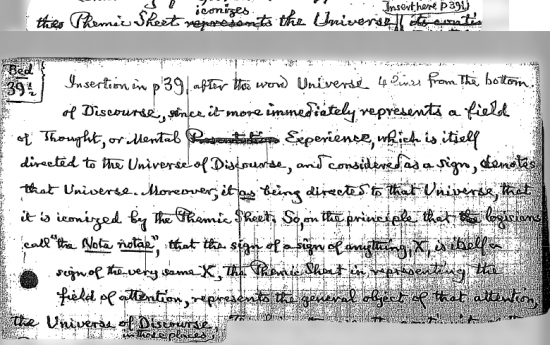 iconizes
Insert here p 39½
the Phemic Sheet represents the Universe
Bed
39½
Insertion in p 39, after the word Universe 4 lines from the bottom.
of Discourse, since it more immediately represents a field
of Thought, or Mental Experience, which is itself
directed to the Universe of Discourse, and considered as a sign, denotes
that Universe. Moreover, it is as being directed to that Universe, that
it is iconized by the Phemic Sheet. So, on the principle that logicians
call "the Nota notae", that the sign of a sign of anything, X, is itself a
sign of the very same X, the Phemic Sheet in representing the
field of attention, represents the general object of that attention,
the Universe of Discourse.
in those places,